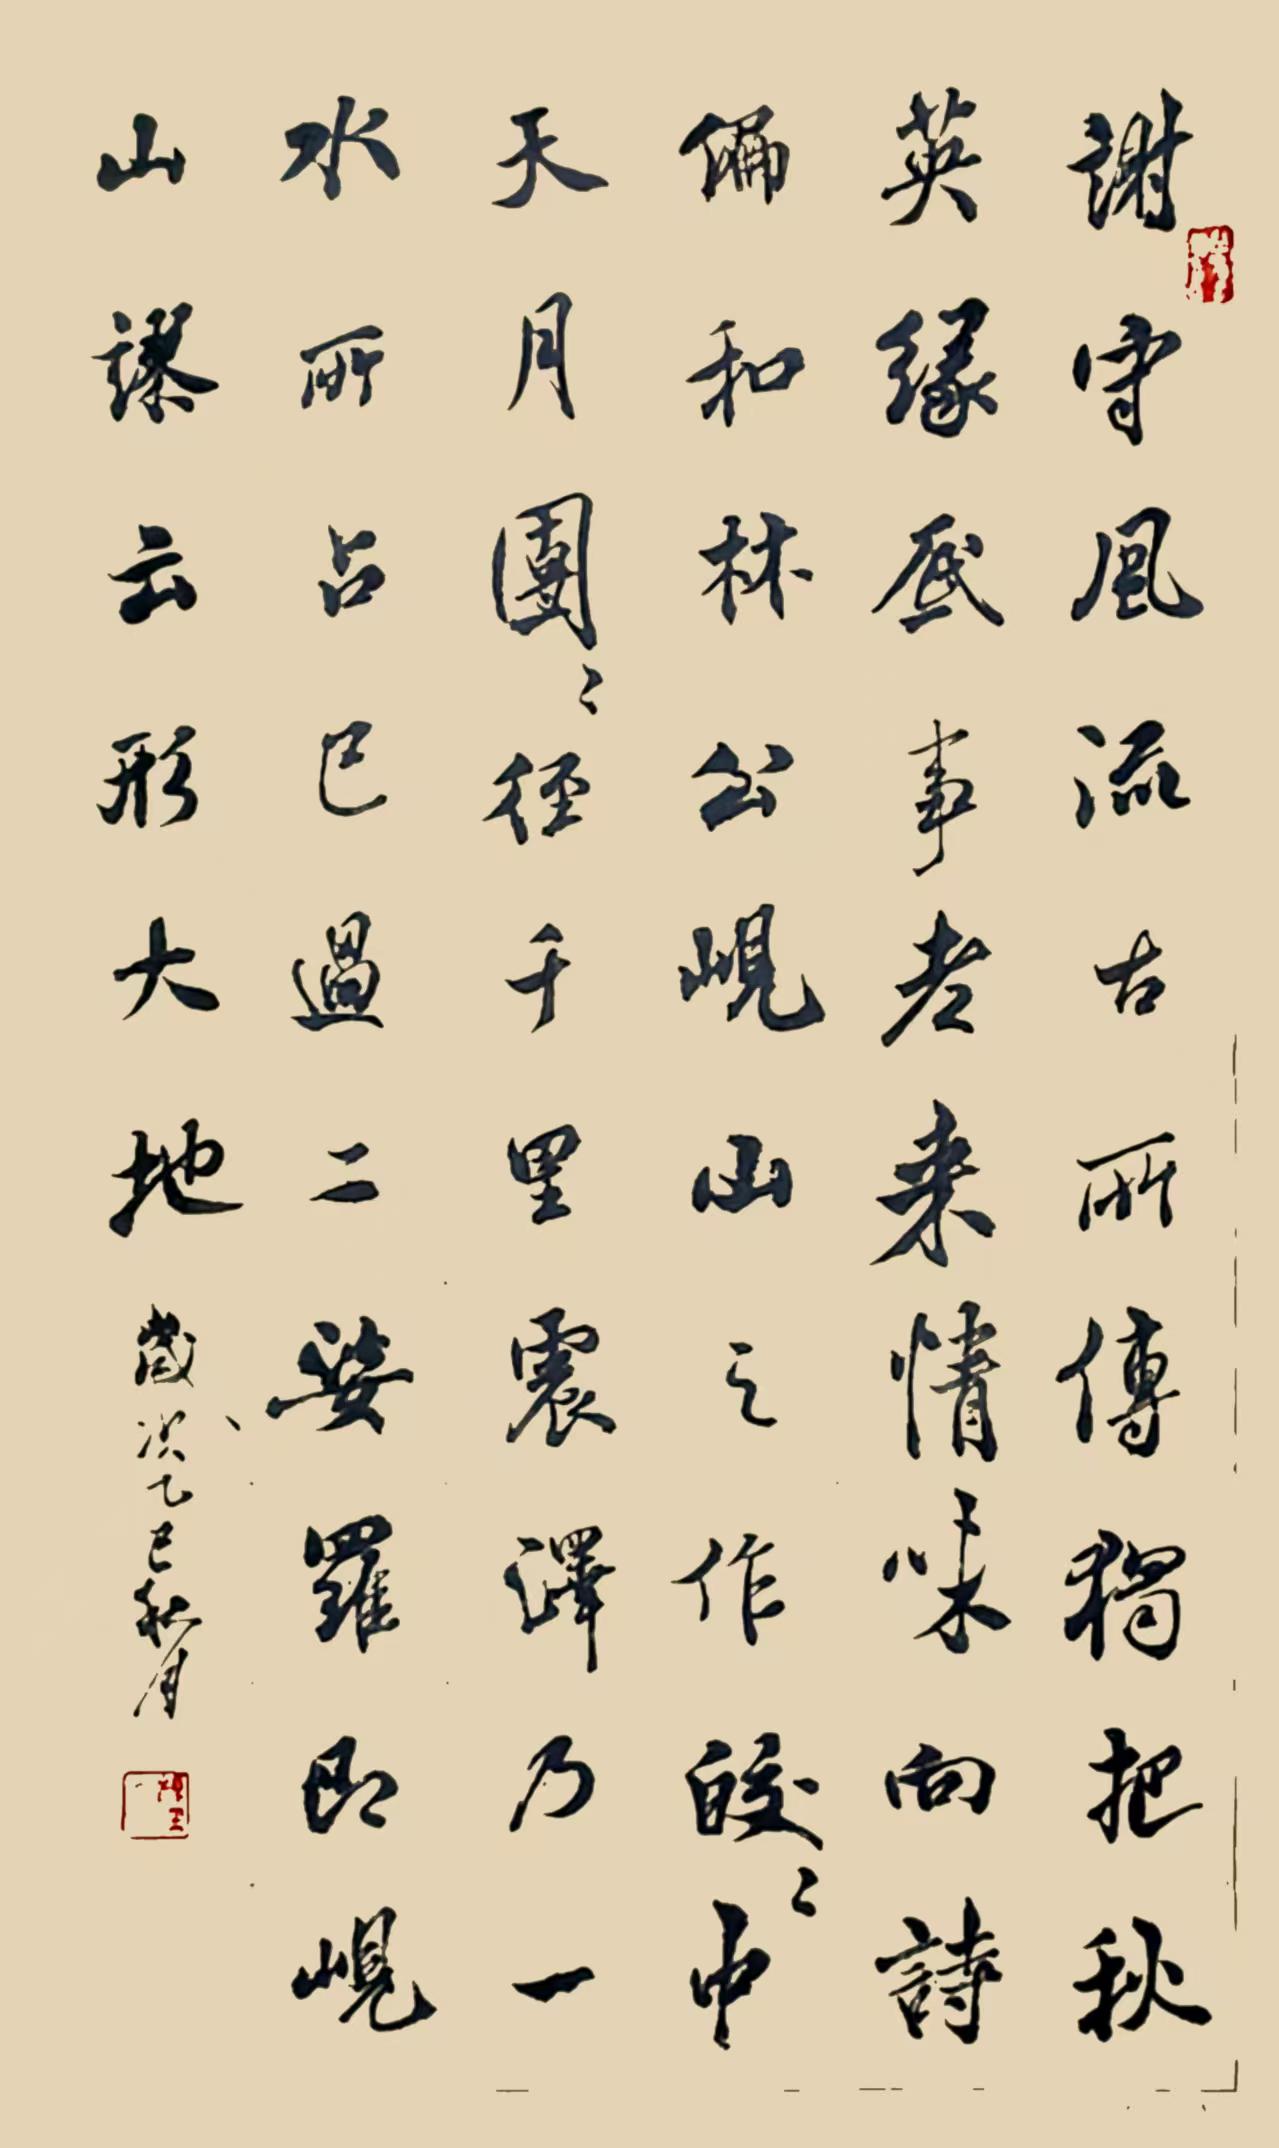 謝守風流古所傳獨把秋
英緣底事老来情味向詩
偏和林公峴山之作皎〻中
天月團〻径千里震澤乃一
水所占已過二娑羅即峴
山謬云形大地
歲次乙巳秋月